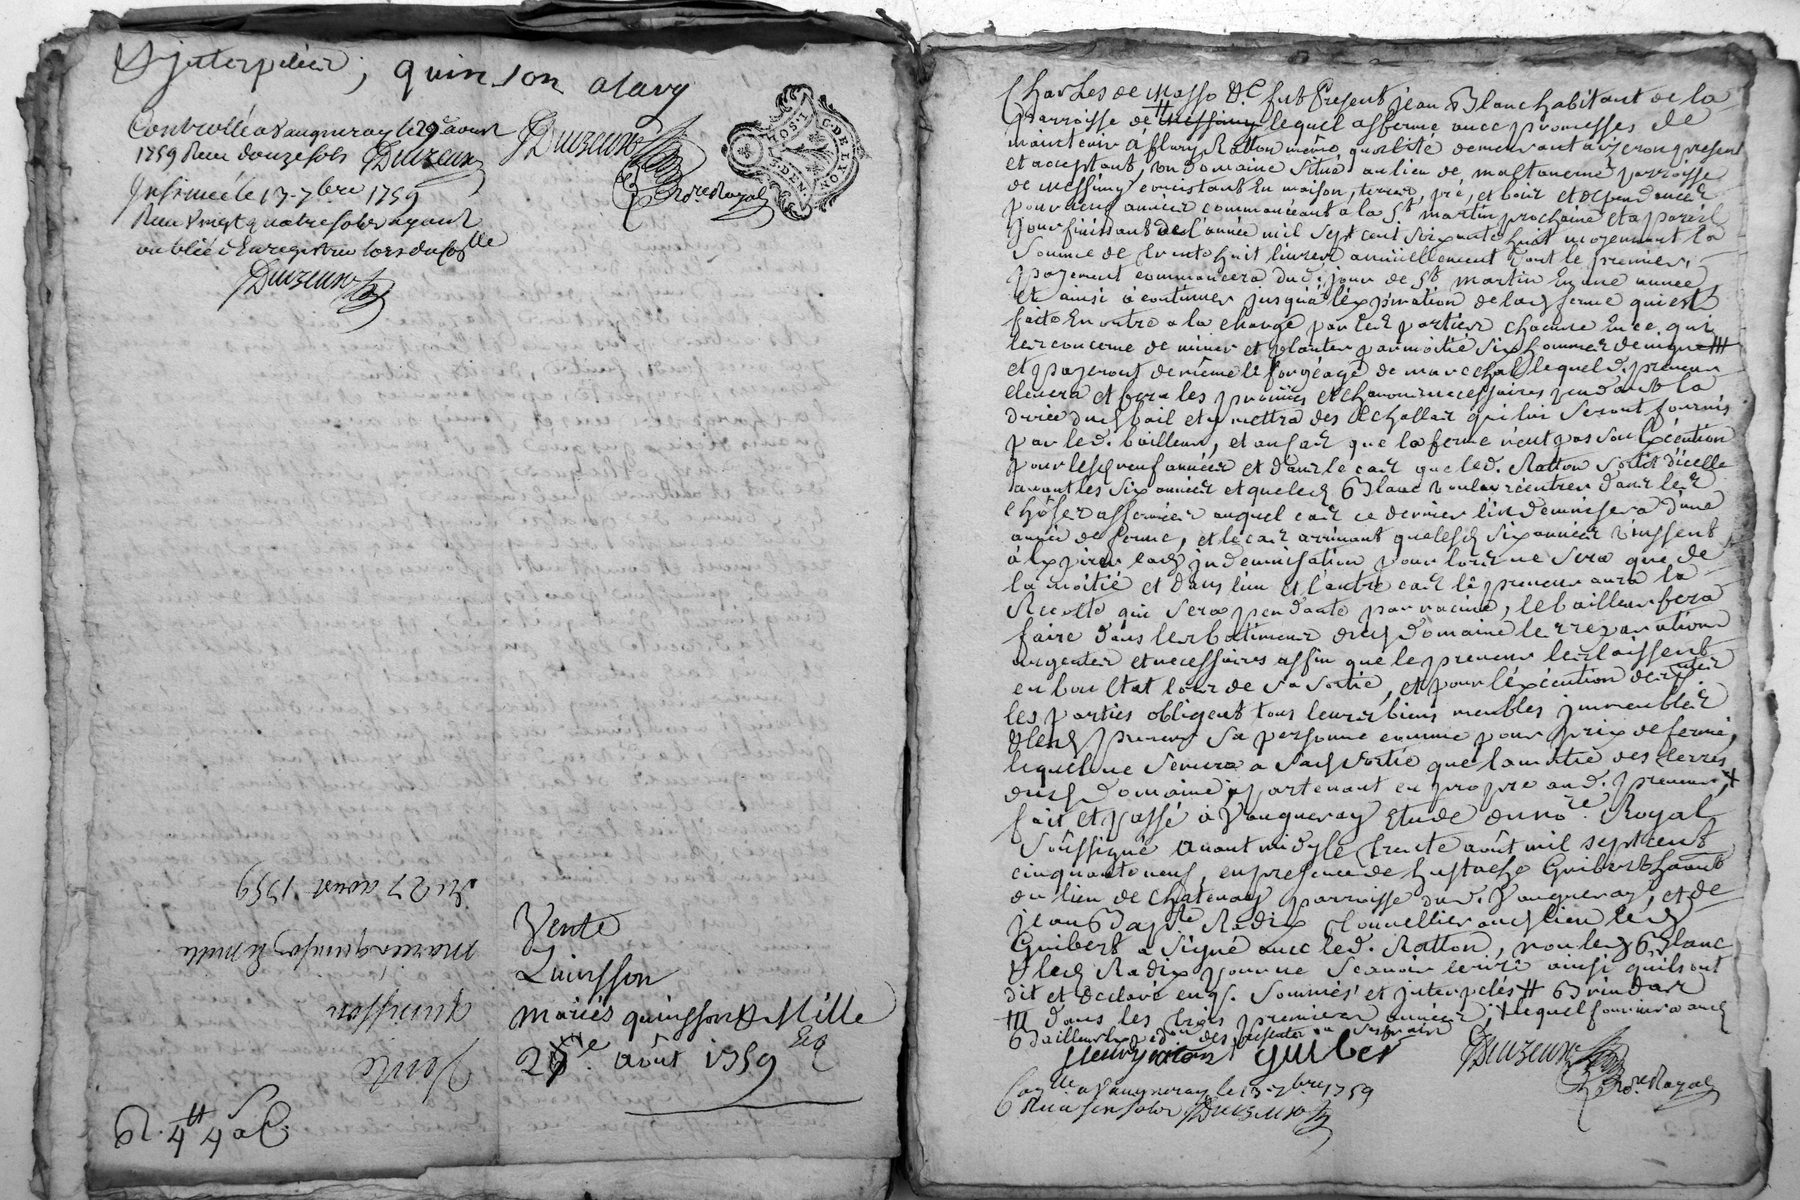 & interpellés, quinson alavy
Controllé a Vaugneray le 29 aout
1759 Reçu douze sols Duizeux
Insinué le 13 7bre 1759
Reçu vingt quatre sols ayant
oublié d'Enregistrer lors du Coñlle
Duizeux
Duizeux
Nore Royal
G. DE LYON
DEN
Du 27 aoust 1759
mariés quinson & mille
quinsson
Vente
Vente
Quinsson
mariés quinsson & Mille
29e août 1759
R. 4tt 4s
Charles de Masso &c fut Present Jean Blanc habitant de la
Parroisse de # lequel afferme avec promesses de
maintenir à fleury Ratton même qualité demeurant à yzeron present
et acceptant, un domaine situé au lieu de maltaverne parroisse
de messimy consistant En maison, terres, pré, et bois et dependances
pour neuf années commenceant à la St martin prochaine et a pareil
jour finissant de l'année mil sept cent soixante huit moyennant la
somme de trente huit livres annuellement dont le premier
payement commencera dud. jour de St martin En une année
et ainsi à continuer jusqu'a l'expiration de lad ferme qui est
faite En outre a la charge par les parties chacune En ce qui
les concerne de miner et planter par moitié six hommes de vigne ###
et payeront de même le forgéage de marechal lequel d. preneur
elevera et fera les provins et necessaires pendant la
durée dud bail et y mettra des Echallas qui lui seront fournis
par led. bailleur, et au cas que la ferme n'eut pas son Exécution
pour lesd neuf années et dans le cas que led. Ratton sortit d'icelle
avant les six années et que led Blanc voulut rentrer dans les
choses affermées auquel cas ce dernier l'indemnisera d'une
année de ferme, et le cas arrivant que lesd six années vinssent
à Expirer lad indemnisation pour lors ne sera que de
la moitié et dans l'un et l'autre cas le preneur aura la
Recolte qui sera pendante par racine, le bailleur fera
faire dans les batimens dud Domaine les reparations
urgentes et necessaires affin que le preneur les laissent
en bon Etat lors de sa sortie, et pour l'exécution des ptes
les parties obligent tous leurs biens meubles immeubles
& led preneur sa personne comme pour prix de ferme,
lequel ne semera a sad sortie que la moitié des terres
dud Domaine apartenant en propre aud. preneur, +
fait et passé à Vaugneray Etude du nore Royal
Soussigné avant midy le trente août mil sept cent
cinquante neuf, en presence de Eustache Guibert habant
du lieu de Chatenay parroisse dud. Vaugneray, et de
jean Bapte Radix tonnellier aud lieu led
Guibert a signé avec led. Ratton, non led Blanc
& led Radix pour ne scavoir ecrire ainsi qu'ils ont
dit et declaré enqs. sommés et interpelés # Brindas
### dans les trois premieres années + lequel fournira aud
Bailleur Expedon des presentes
fleury raton guiber Duizeux
Nore Royal
Conlle a Vaugneray le 13 7bre 1759
Reçu Duizeux